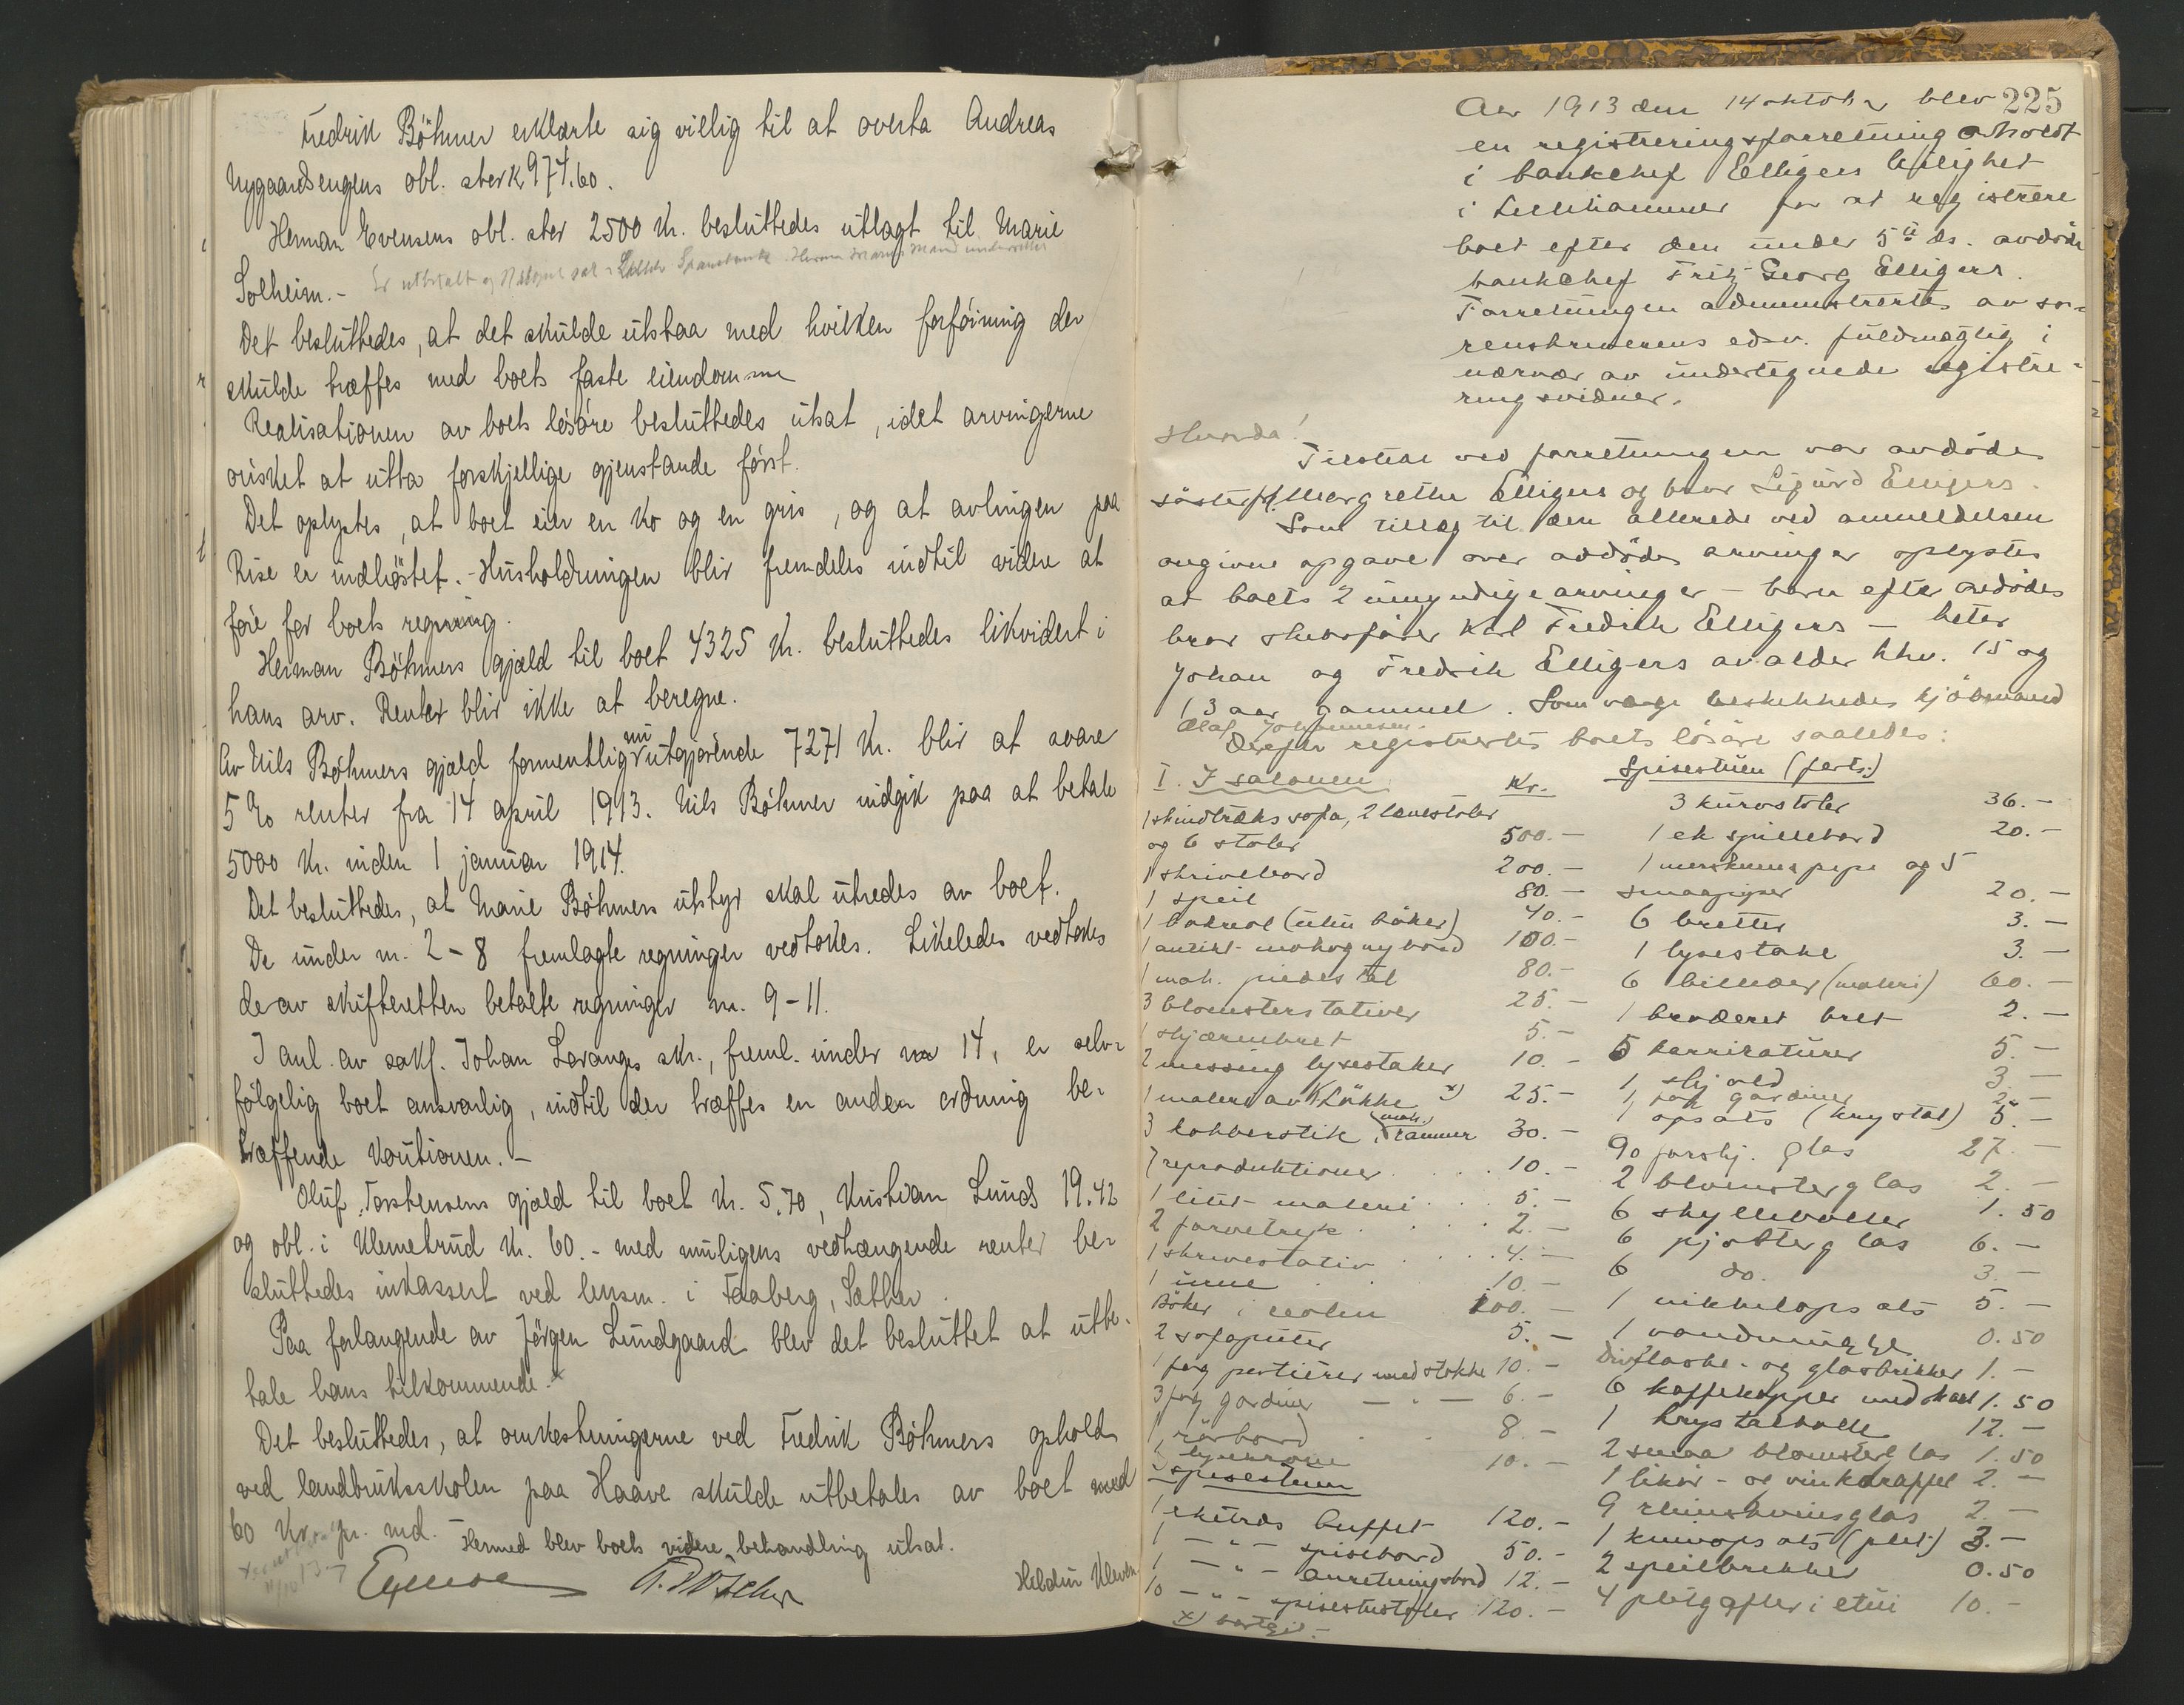 Fredrik Böhmer erklærte sig villig til at overta Andreas
Nygaardsengens obl. stor k 974.60.
Herman Evensens obl. stor 2500 Kr. besluttedes utlagt til Marie
Solheim. - Er utbetalt og
Det besluttedes, at det skulde utstaa med hvilken forföining der
skulde træffes med boets faste eiendomme
Realisationen av boets lösöre besluttedes utsat, idet arvingerne
önsket at utta forskjellige gjenstande först.
Det oplystes, at boet eier en ko og en gris, og at avlingen paa
Rise er indhöstet. - Husholdningen blir fremdeles indtil videre at
före for boets regning.
Herman Böhmers gjæld til boet 4325 Kr. besluttedes likvidert i
hans arv. Renter blir ikke at beregne.
Av Nils Böhmers gjæld formentlig nu utgjörende 7271 Kr. blir at svare
5 % renter fra 14 april 1913. Nils Böhmer indgik paa at betale
5000 Kr. inden 1 januar 1914.
Det besluttedes, at Marie Böhmers utstyr skal utredes av boet.
De under nr. 2-8 fremlagte regninger vedtokes. Likeledes vedtokes
de av skifteretten betalte regninger nr. 9-11.
I anl. av sakf. Johan Laranges skr., freml. under nr 14, er selv-
fölgelig boet ansvarlig, indtil der træffes en anden ordning be-
træffende kautionen. -
Oluf Torstensens gjæld til boet Kr. 5.70, Kristian Lunds 19.42
og obl. i Klemetrud Kr. 60.- med muligens vedhængende renter be-
sluttedes inkassert ved lensm. i Faaberg, Sæther.
Paa forlangende av Jörgen Lundgaard blev det besluttet at utbe-
tale hans tilkommende. x
Det besluttedes, at omkostningerne ved Fredrik Böhmers ophold
ved landbruksskolen paa Haave skulde utbetales av boet med
60 Kr. pr. md. - Hermed blev boets videre behandling utsat.
225
Aar 1913 den 14 oktober blev
en registreringsforretning avholdt
i bankchef Elligers leilighet
i Lillehammer for at registrere
boet efter den under 5te ds. avdöde
bankchef Fritz Georg Elligers.
Forretningen administrertes av so-
renskriverens edsv. fuldmægtig i
nærvær av undertegnede registre-
ringsvidner.
Hvorda!
Tilstede ved forretningen var avdödes
söster frk. Margrethe Elligers og bror Sigurd Elligers.
Som tillæg til den allerede ved anmeldelsen
angivne opgave over avdödes arvinger oplystes
at boets 2 umyndige arvinger - barn efter avdödes
bror skibsförer Karl Fredrik Elligers - heter
Johan og Fredrik Elligers av alder hhv. 15 og
13 aar gammel. Som verge beskikkedes kjöbmand
Olaf Johannesen.
Derefter registrertes boets lösöre saaledes:
I. I salonen Kr.
1 skindtræks sofa, 2 lænestoler
og 6 stoler 500.-
1 skrivebord 200.-
1 speil 80.-
1 bokreol (uten böker) 40.-
1 antikt mahogny bord 100.-
1 mah. piedestal 80.-
3 blomsterstativer 25.-
1 skjærmbret 5.-
2 messing lysestaker 10.-
1 maleri av Lökke x) 25.-
3 kobberstik i (mah.) rammer 30.-
7 reproduktioner 10.-
1 litet maleri 5.-
2 farvetryk 2.-
1 skrivestativ 4.-
1 urne 10.-
Böker i reolen 100.-
2 sofaputer 5.-
1 fag portierer med stokke 10.-
3 fag gardiner - " - 6.-
1 rörbord 8.-
1 lysekrone 10.-
Spisestuen
1 eketræs buffet 120.-
1 - " - spisebord 50.-
1 - " - anretningsbord 12.-
10 - " - spisestustoler 120.-
x) bortgit.-
Spisestuen (forts.)
3 kurvstoler 36.-
1 ek spillebord 20.-
1 merskumspipe og 5
smaapiper 20.-
6 bretter 3.-
1 lysestake 3.-
6 billeder (maleri) 60.-
1 broderet bret 2.-
5 karrikaturer 5.-
1 skjold 3.-
1 fag gardiner 2.-
1 opsats (krystal) 5.-
90 forskj. glas 27.-
2 blomsterglas 2.-
6 skylleboller 1.50
6 pjolterglas 6.-
6 do. 3.-
1 nikkelopsats 5.-
1 vandmugge 0.50
Div flaske- og glasbrikker 1.-
6 kaffekopper med skaal 1.50
1 krystalbolle 12.-
2 smaa blomsterglas 1.50
1 likör- og vinkaraffel 2.-
9 rhinskvinsglas 2.-
1 knivopsats (plet) 3.-
2 speilbrikker 0.50
4 pletgafler i etui 10.-